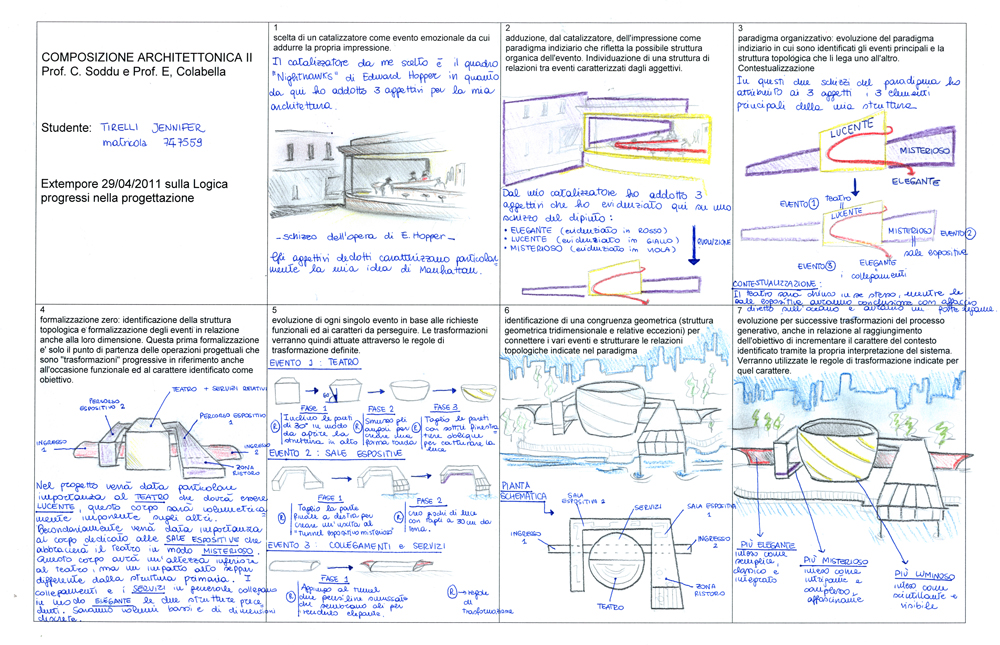 COMPOSIZIONE ARCHITETTONICA II
Prof. C. Soddu e Prof. E, Colabella
Studente: TIRELLI JENNIFER
matricola 747559
Extempore 29/04/2011 sulla Logica
progressi nella progettazione
1
scelta di un catalizzatore come evento emozionale da cui
addurre la propria impressione.
Il catalizzatore da me scelto è il quadro
"Nighthawks" di Edward Hopper in quanto
da qui ho addotto 3 aggettivi per la mia
architettura.
-schizzo dell'opera di E. Hopper-
Gli aggettivi dedotti caratterizzano particolar
mente la mia idea di Manhattan.
2
adduzione, dal catalizzatore, dell'impressione come
paradigma indiziario che rifletta la possibile struttura
organica dell'evento. Individuazione di una struttura di
relazioni tra eventi caratterizzati dagli aggettivi.
Dal mio catalizzatore ho addotto 3
aggettivi che ho evidenziato qui su uno
schizzo del dipinto:
• ELEGANTE (evidenziato in ROSSO)
• LUCENTE (evidenziato in GIALLO)
• MISTERIOSO (evidenziato in VIOLA)
EVOLUZIONE
3
paradigma organizzativo: evoluzione del paradigma
indiziario in cui sono identificati gli eventi principali e la
struttura topologica che li lega uno all'altro.
Contestualizzazione
In questi due schizzi del paradigma ho
attribuito ai 3 aggettivi i 3 elementi
principali della mia struttura
LUCENTE
MISTERIOSO
ELEGANTE
EVENTO 1 TEATRO
LUCENTE
MISTERIOSO EVENTO 2
sale espositive
EVENTO 3 ELEGANTE
i collegamenti
CONTESTUALIZZAZIONE:
Il teatro sarà chiuso in se stesso, mentre le
sale espositive avranno conclusione con affaccio
diretto sull'oceano e avranno un
4
formalizzazione zero: identificazione della struttura
topologica e formalizzazione degli eventi in relazione
anche alla loro dimensione. Questa prima formalizzazione
e' solo il punto di partenza delle operazioni progettuali che
sono "trasformazioni" progressive in riferimento anche
all'occasione funzionale ed al carattere identificato come
obiettivo.
TEATRO + SERVIZI RELATIVI
PERCORSO
ESPOSITIVO 2
PERCORSO ESPOSITIVO
1
INGRESSO
1
INGRESSO
2
ZONA
RISTORO
Nel progetto verrà data particolare
importanza al TEATRO che dovrà essere
LUCENTE, questo corpo sarà volumetrica
mente imponente sugli altri.
Secondariamente verrà data importanza
al corpo dedicato alle SALE ESPOSITIVE che
abbraccierà il teatro in modo MISTERIOSO.
Questo corpo avrà un'altezza inferiore
al teatro, ma un impatto alto seppur
differente dalla struttura primaria. I
collegamenti e i SERVIZI in generale collegano
in modo ELEGANTE le due strutture prece
denti. Saranno volumi bassi e di dimensioni
discrete.
5
evoluzione di ogni singolo evento in base alle richieste
funzionali ed ai caratteri da perseguire. Le trasformazioni
verranno quindi attuate attraverso le regole di
trasformazione definite.
EVENTO 1 : TEATRO
FASE 1
FASE 2
FASE 3
R Inclino le pareti
di 30° in modo
da aprire la
struttura in alto
R Smusso gli
angoli per
creare una
forma tonda
R Taglio le pareti
con sottili finestra
ture oblique
per catturare la
luce
EVENTO 2 : SALE ESPOSITIVE
FASE 1
FASE 2
R Taglio la parte
finale a destra per
creare un'uscita al
"tunnel espositivo misterioso"
R creo giochi di luce
con tagli a 30 cm da
terra.
EVENTO 3 : COLLEGAMENTI e SERVIZI
FASE 1
R Aggiungo al tunnel
due pensiline smussate
che sembrano ali per
renderlo elegante.
R → regole
di
trasformazione
6
identificazione di una congruenza geometrica (struttura
geometrica tridimensionale e relative eccezioni) per
connettere i vari eventi e strutturare le relazioni
topologiche indicate nel paradigma
PIANTA
SCHEMATICA
SALA
ESPOSITIVA 2
SERVIZI
SALA ESPOSITIVA
1
INGRESSO
1
INGRESSO
2
TEATRO
ZONA
RISTORO
7
evoluzione per successive trasformazioni del processo
generativo, anche in relazione al raggiungimento
dell'obiettivo di incrementare il carattere del contesto
identificato tramite la propria interpretazione del sistema.
Verranno utilizzate le regole di trasformazione indicate per
quel carattere.
PIÙ ELEGANTE
inteso come
semplice,
classico e
integrato
PIÙ MISTERIOSO
inteso come
intrigante e
complesso,
affascinante
PIÙ LUMINOSO
inteso come
scintillante e
visibile